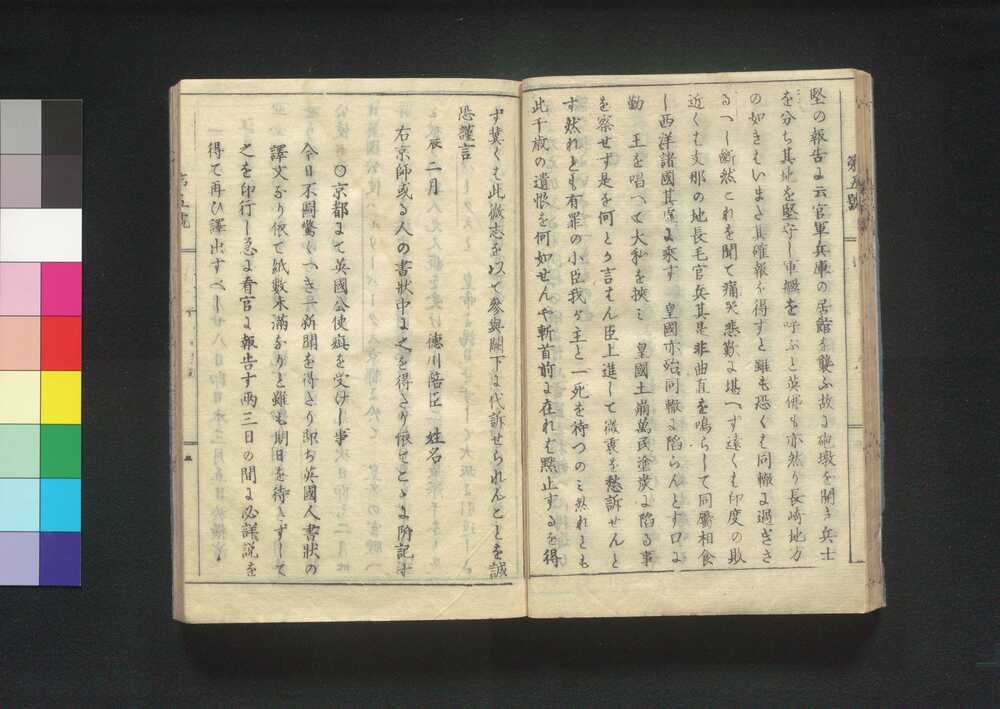 第五號
堅の報告に云官軍兵庫の居館を襲ふ故に砲墩を開き兵士
を分ち其地を堅守し軍艦を呼ふと英佛も亦然り長崎地方
の如きもいまた其確報を得すと雖も恐くも同轍に過ぎさ
るへし断然これを聞て痛哭悲歎に堪へす遠くも印度の取
近くも支那の地長毛官兵其是非曲直を鳴らして同屬相食
し西洋諸國其虚に乗す 皇國亦始同轍に陥らんとす口に
勤 王を唱へて大私を挟み 皇國土崩萬民塗炭に陥る事
を察せす是を何とか言はん臣上進して微衷を愁訴せんと
す然れとも有罪の小臣我か主と一死を待つのミ然れとも
此千歳の遺恨を何如せんや斬首前に在れも黙止するを得
す冀くも此微志を以て參與閣下に代訴せられんことを誠
恐謹言
辰 二月 徳川陪臣 姓名
右京師或る人の書状中に之を得たり依てこゝに附記す
○京都にて英國公使疵を受けし事
今日不圖驚くへき一新聞を得たり即ち英國人書状の
譯文なり依て紙數未滿なりと雖も期日を待たずして
之を印行し急に看官に報告す両三日の間に必詳説を
得て再ひ譯出すべし
第五號